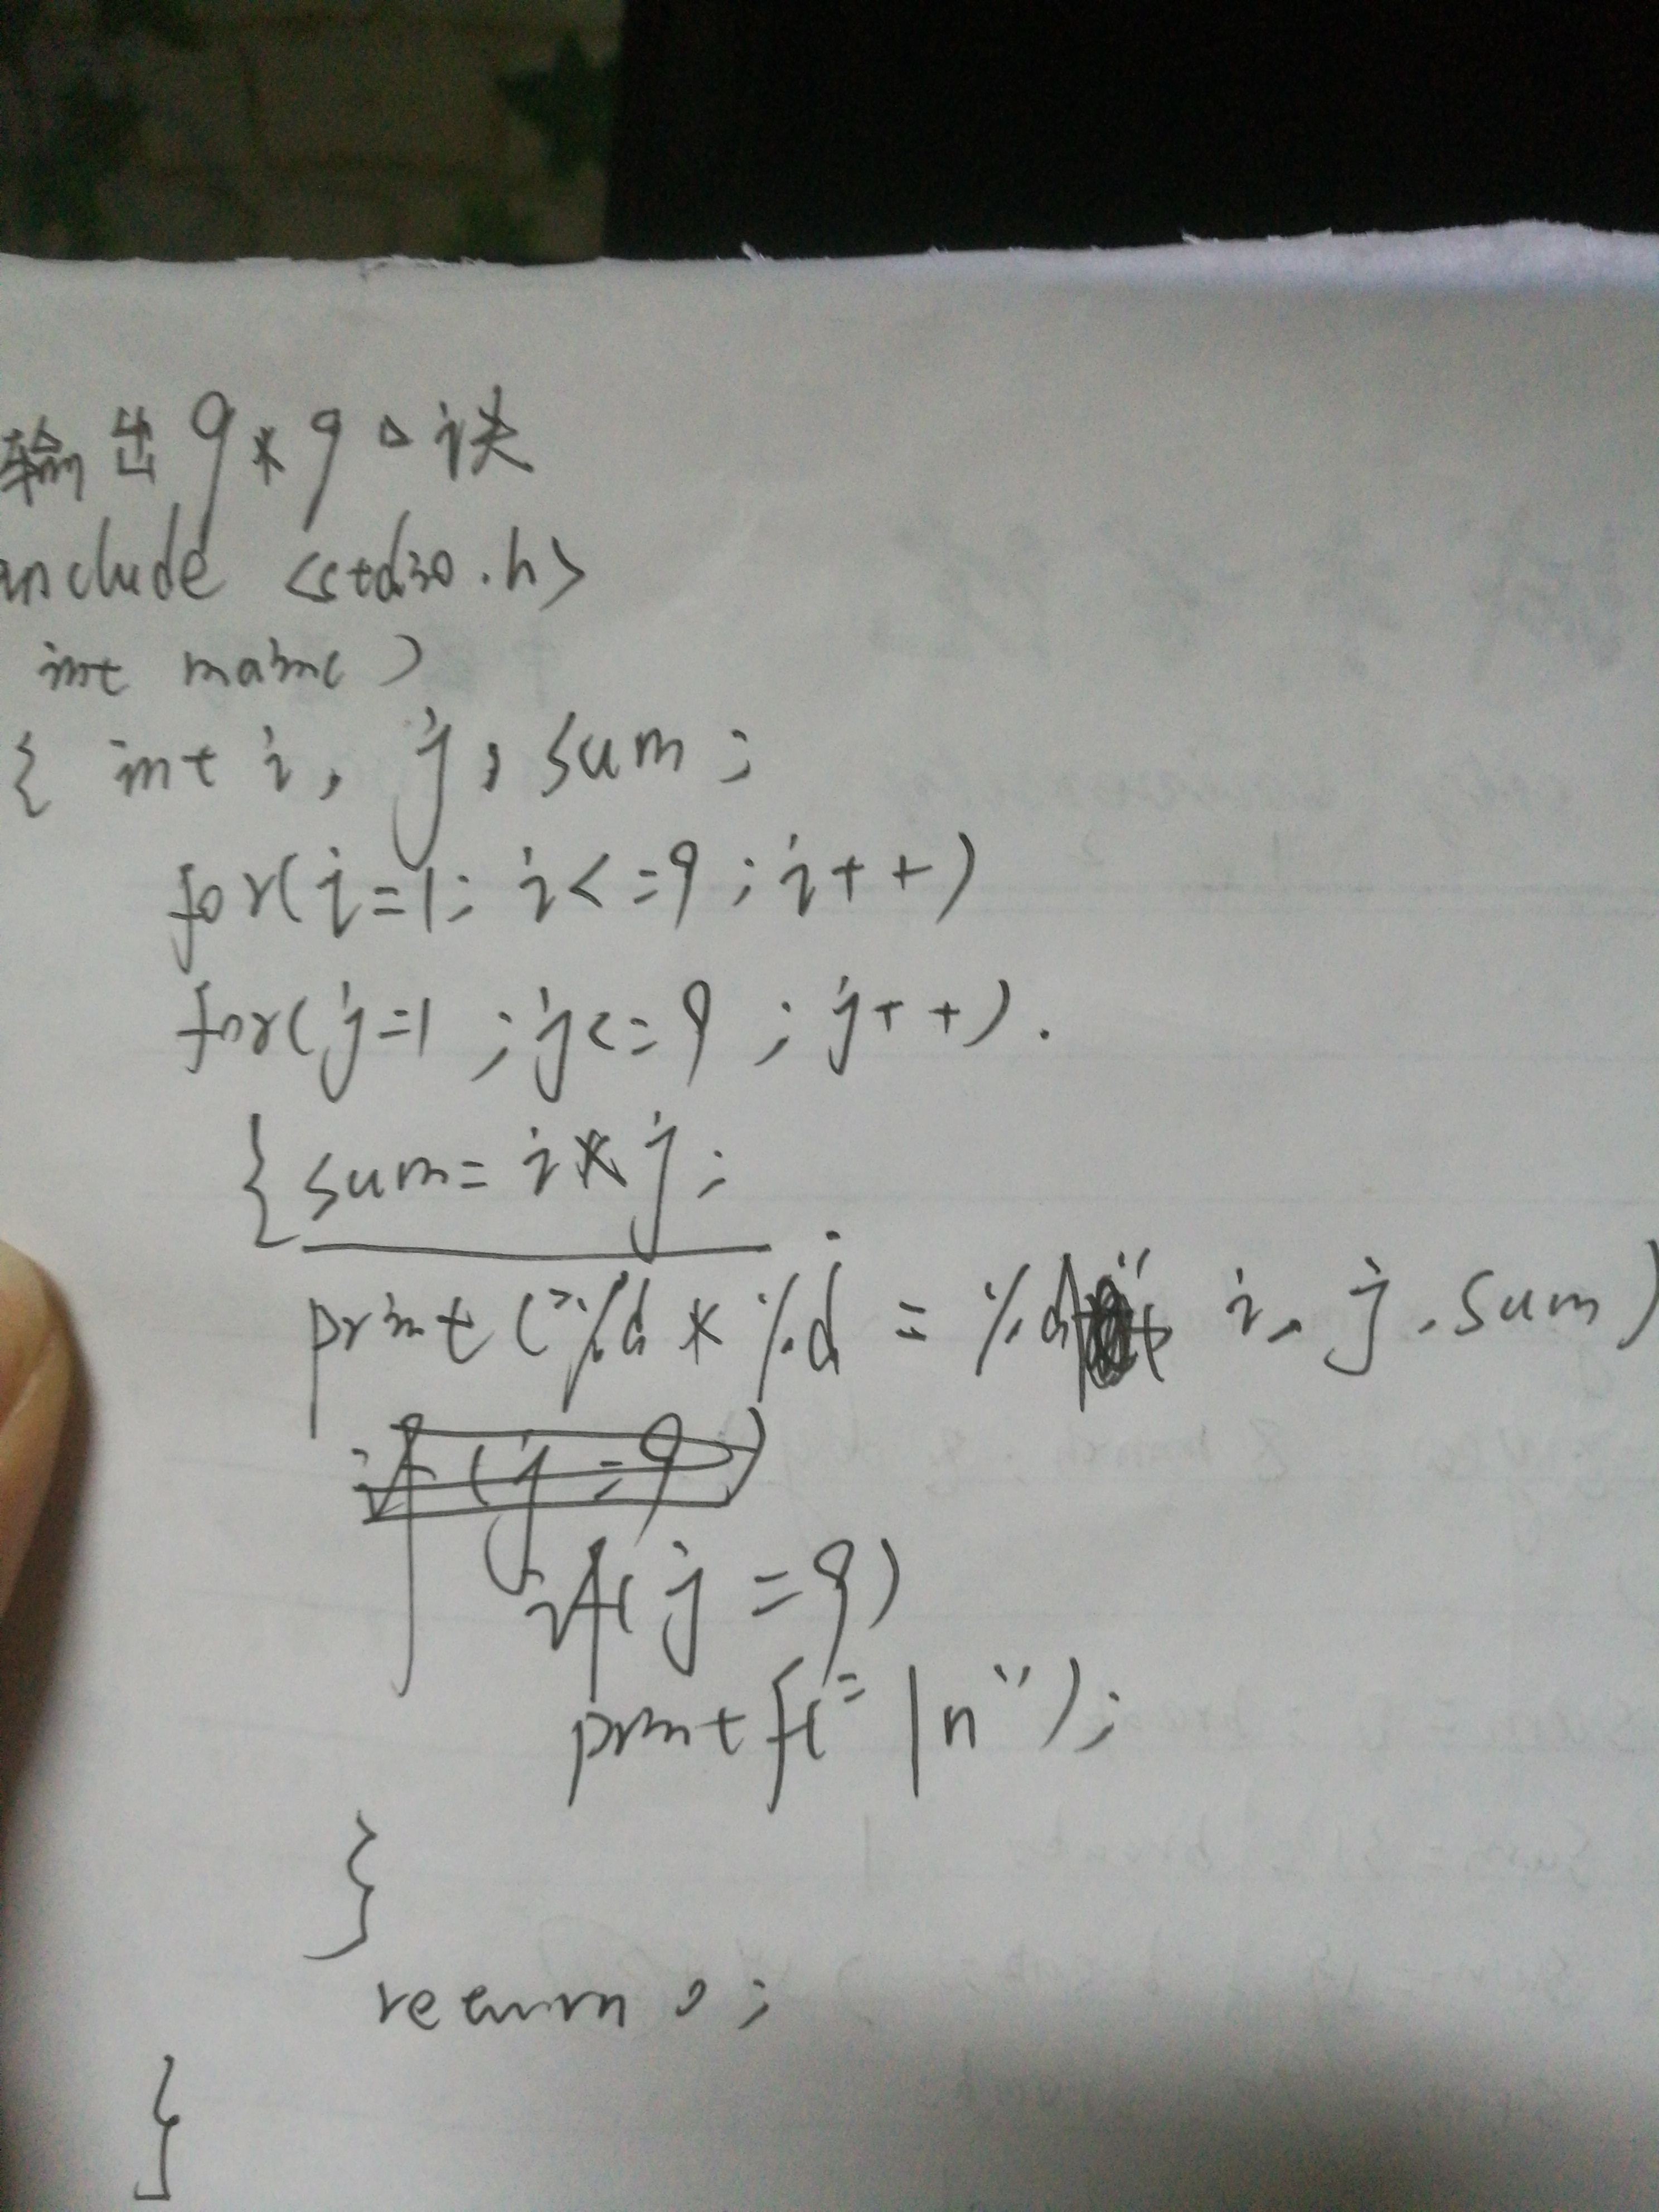 输出9*9口诀
include <stdio.h>
int main()
{ int i, j, sum;
for(i=1; i<=9; i++)
for(j=1; j<=9; j++).
{sum=i*j;
print("%d*%d=%d" i, j, sum)
if(j=9)
if(j=9)
printf("\n");
}
return 0;
}